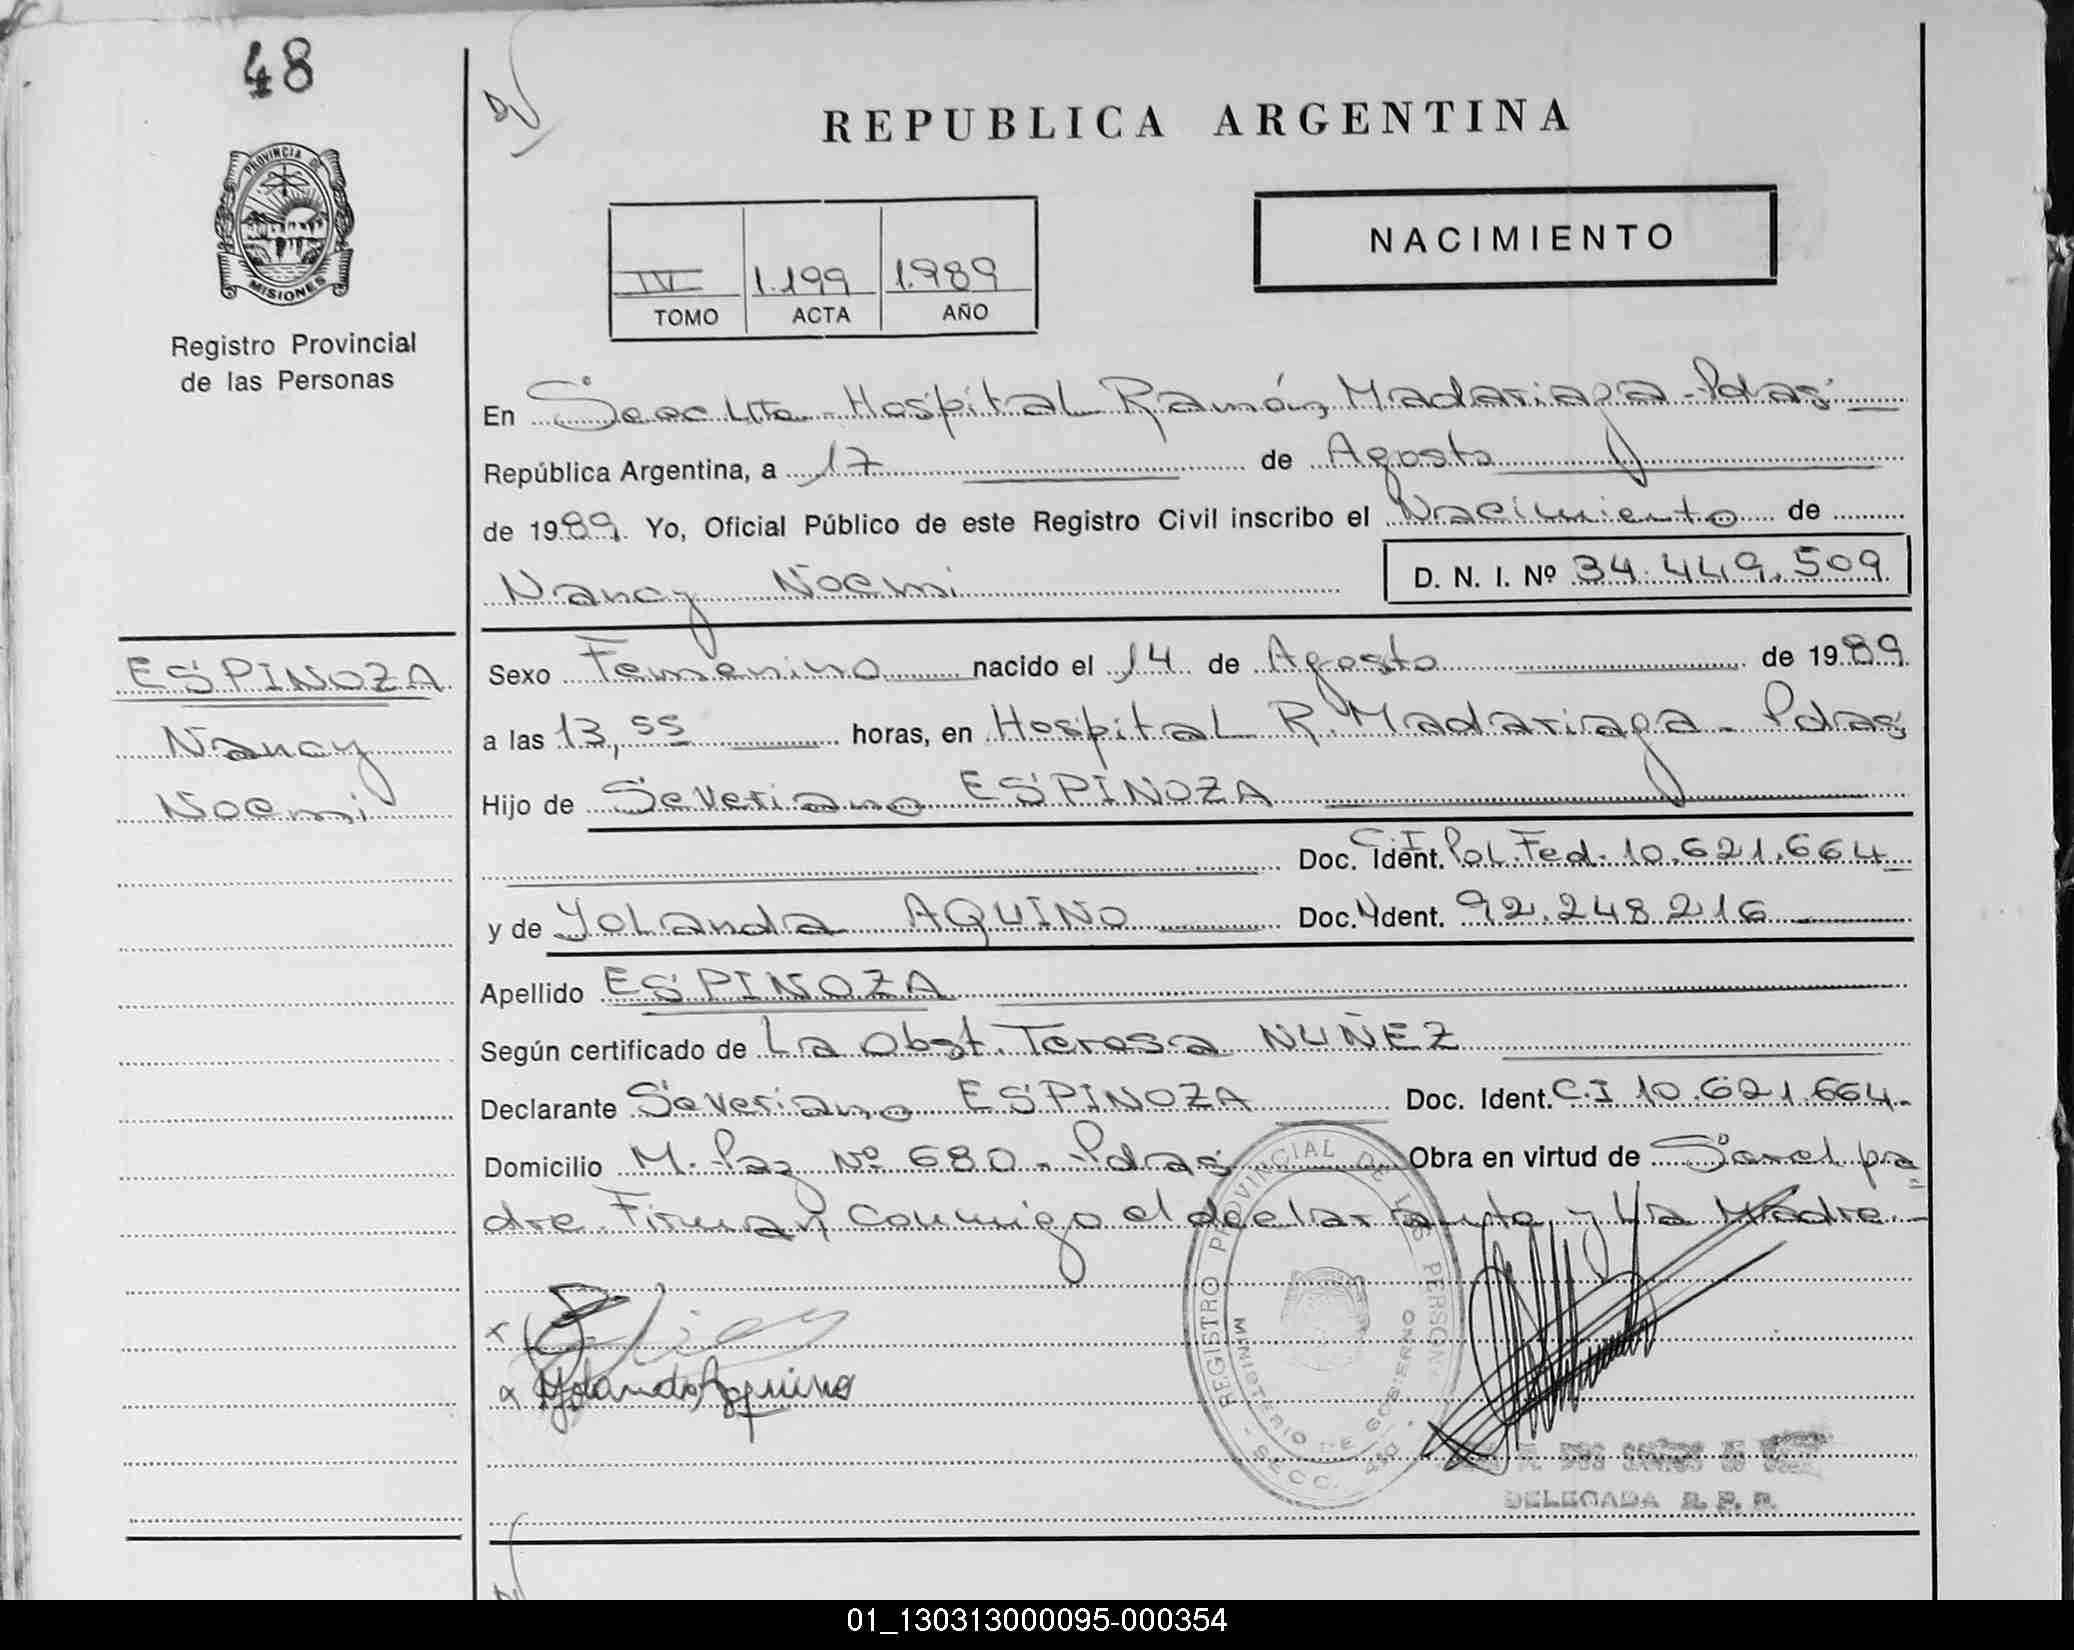 48
REPUBLICA ARGENTINA
PROVINCIA DE
MISIONES
Registro Provincial
de las Personas
NACIMIENTO
IV 1.199 1.989
TOMO ACTA AÑO
En Secc 4ta. Hospital Ramón Madariaga - Pdas
República Argentina, a 17 de Agosto
de 1989. Yo, Oficial Público de este Registro Civil inscribo el Nacimiento de
Nancy Noemi D. N. I. Nº 34.449.509
ESPINOZA
Nancy
Noemi
Sexo Femenino nacido el 14 de Agosto de 1989
a las 13,55 horas, en Hospital R. Madariaga - Pdas
Hijo de Severiano ESPINOZA
Doc. Ident. C.I Pol. Fed. 10.621.664
y de Yolanda AQUINO Doc. Ident. 92.248.216
Apellido ESPINOZA
Según certificado de La Obst. Teresa NUÑEZ
Declarante Severiano ESPINOZA Doc. Ident. C.I 10.621.664
Domicilio M. Paz Nº 680 - Pdas Obra en virtud de Ser el pa
dre. Firman conmigo el declarante y la Madre.-
x
x Yolanda Aquino
REGISTRO PROVINCIAL DE LAS PERSONAS
MINISTERIO DE GOBIERNO
SECC.
DELEGADA R. P. P.
01_130313000095-000354